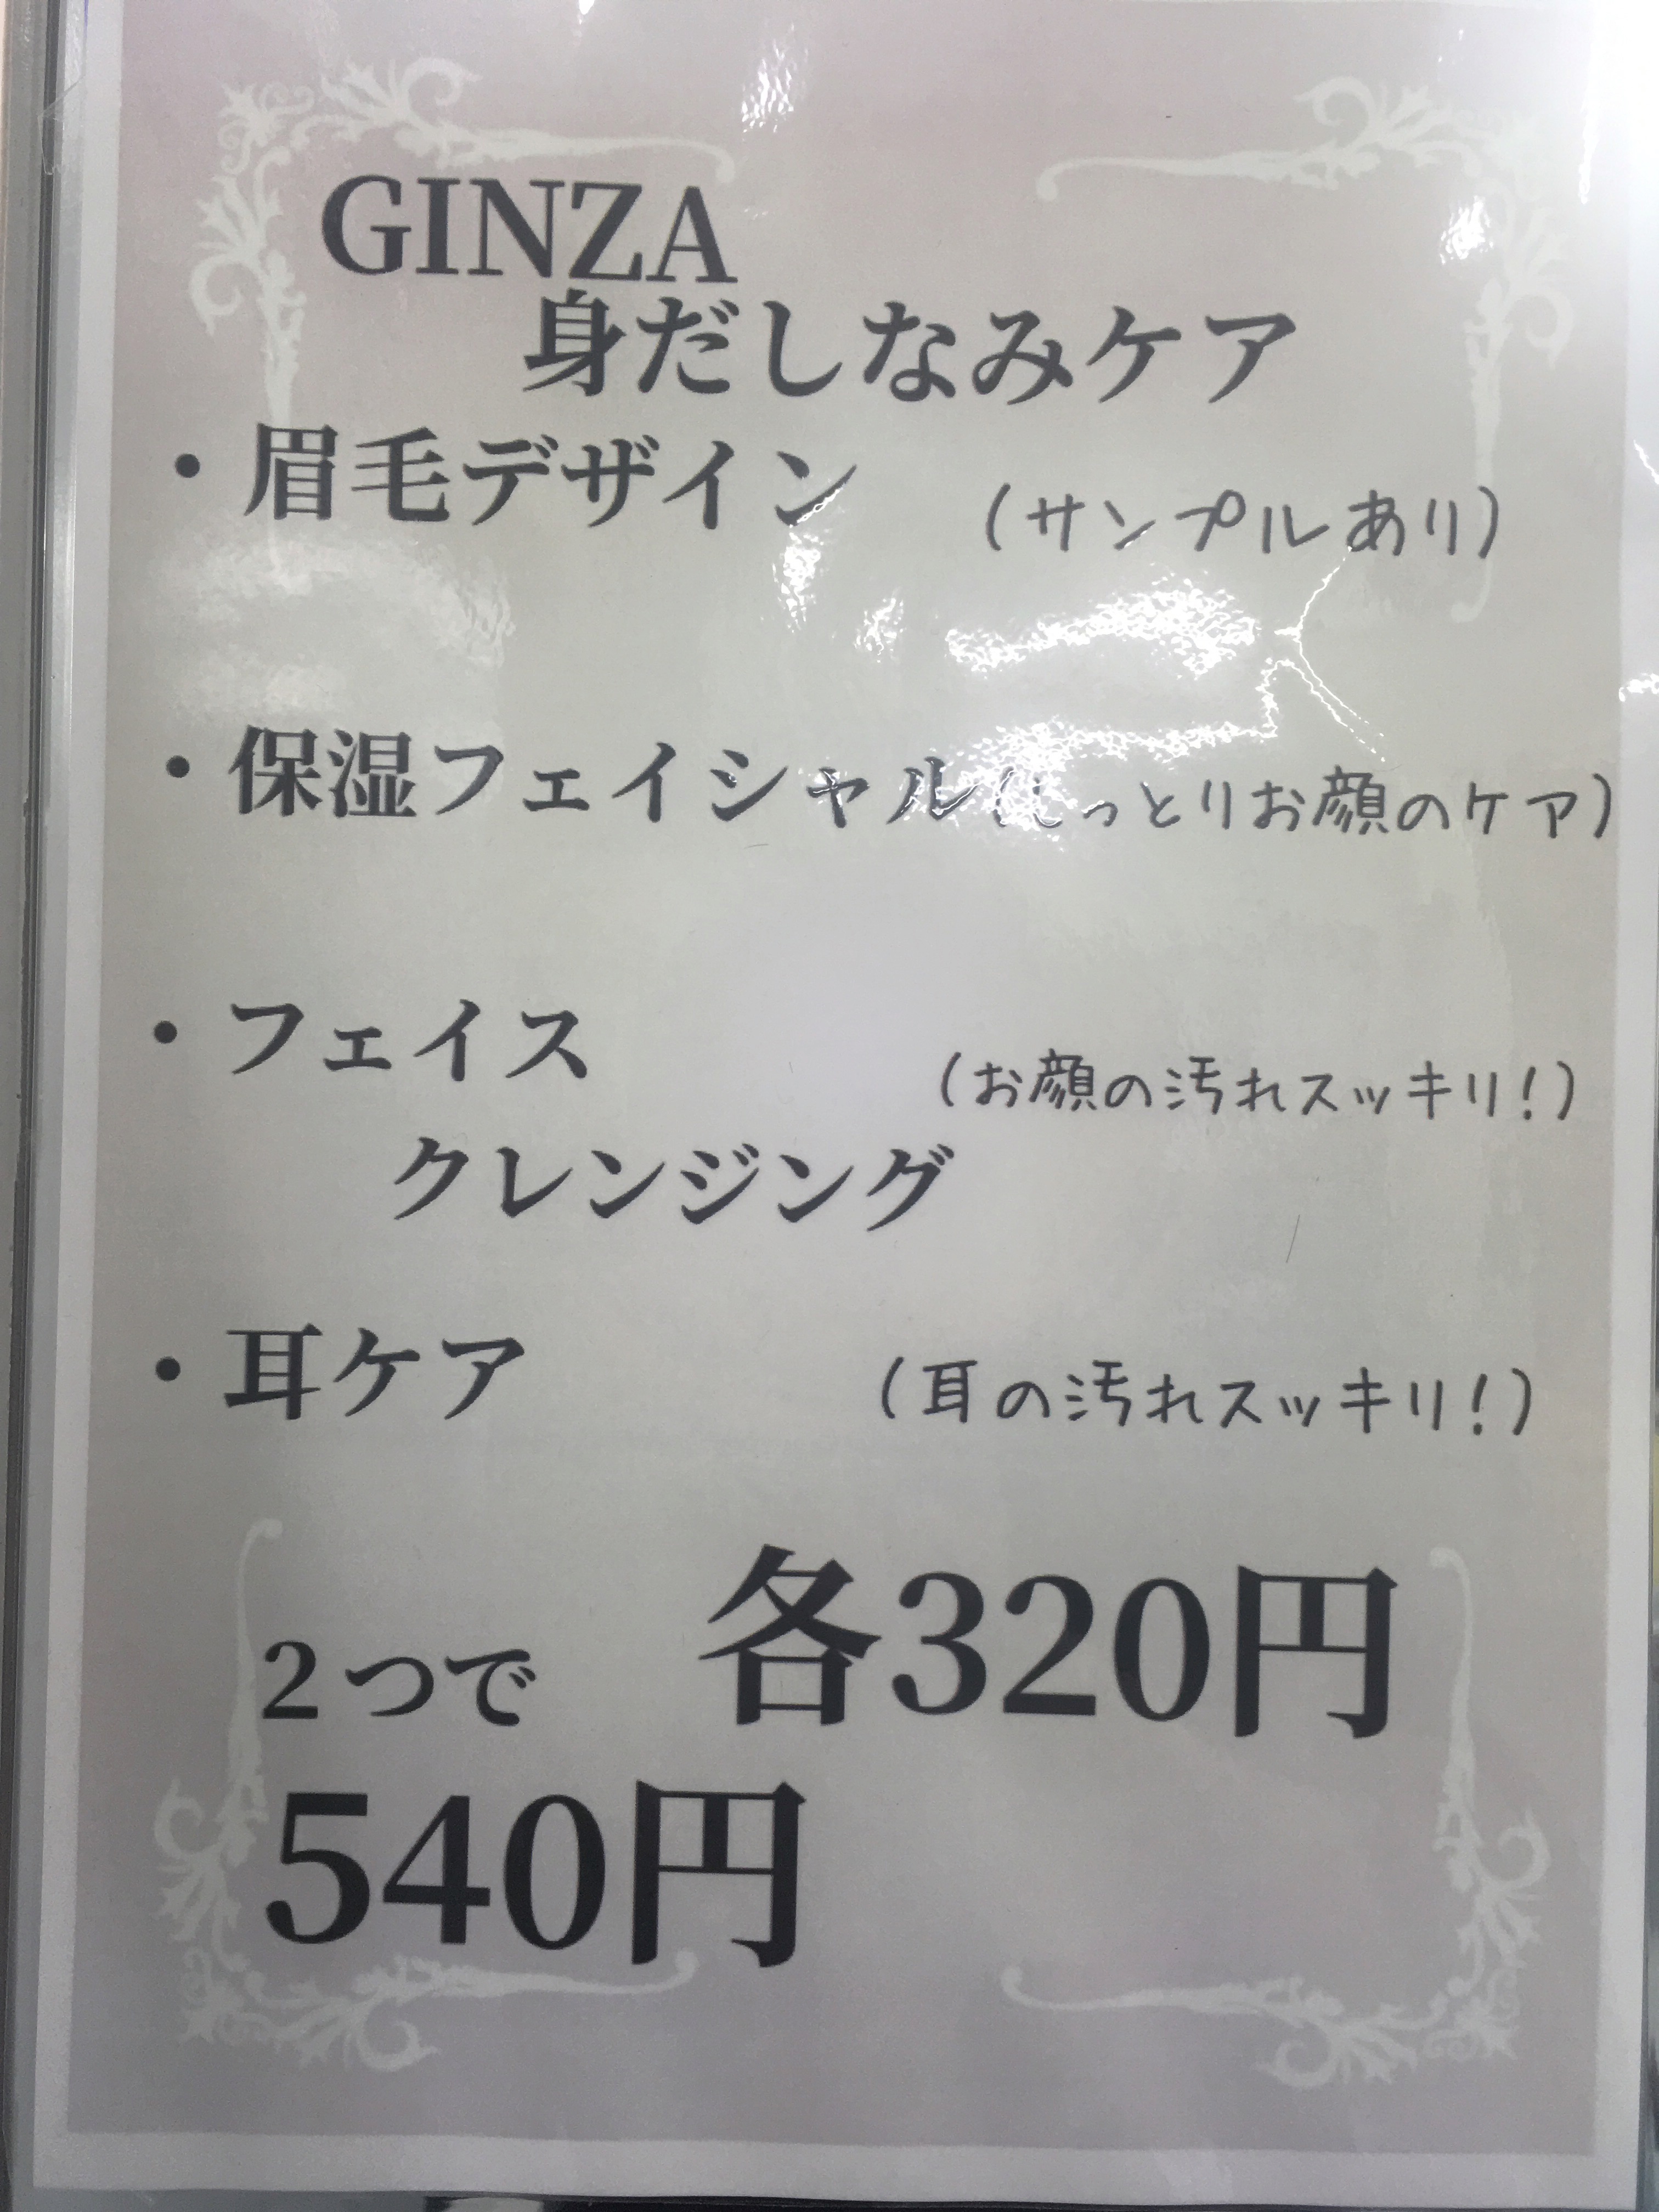 GINZA
身だしなみケア
・眉毛デザイン (サンプルあり)
・保湿フェイシャル(しっとりお顔のケア)
・フェイス (お顔の汚れスッキリ!)
クレンジング
・耳ケア (耳の汚れスッキリ!)
各320円
2つで
540円